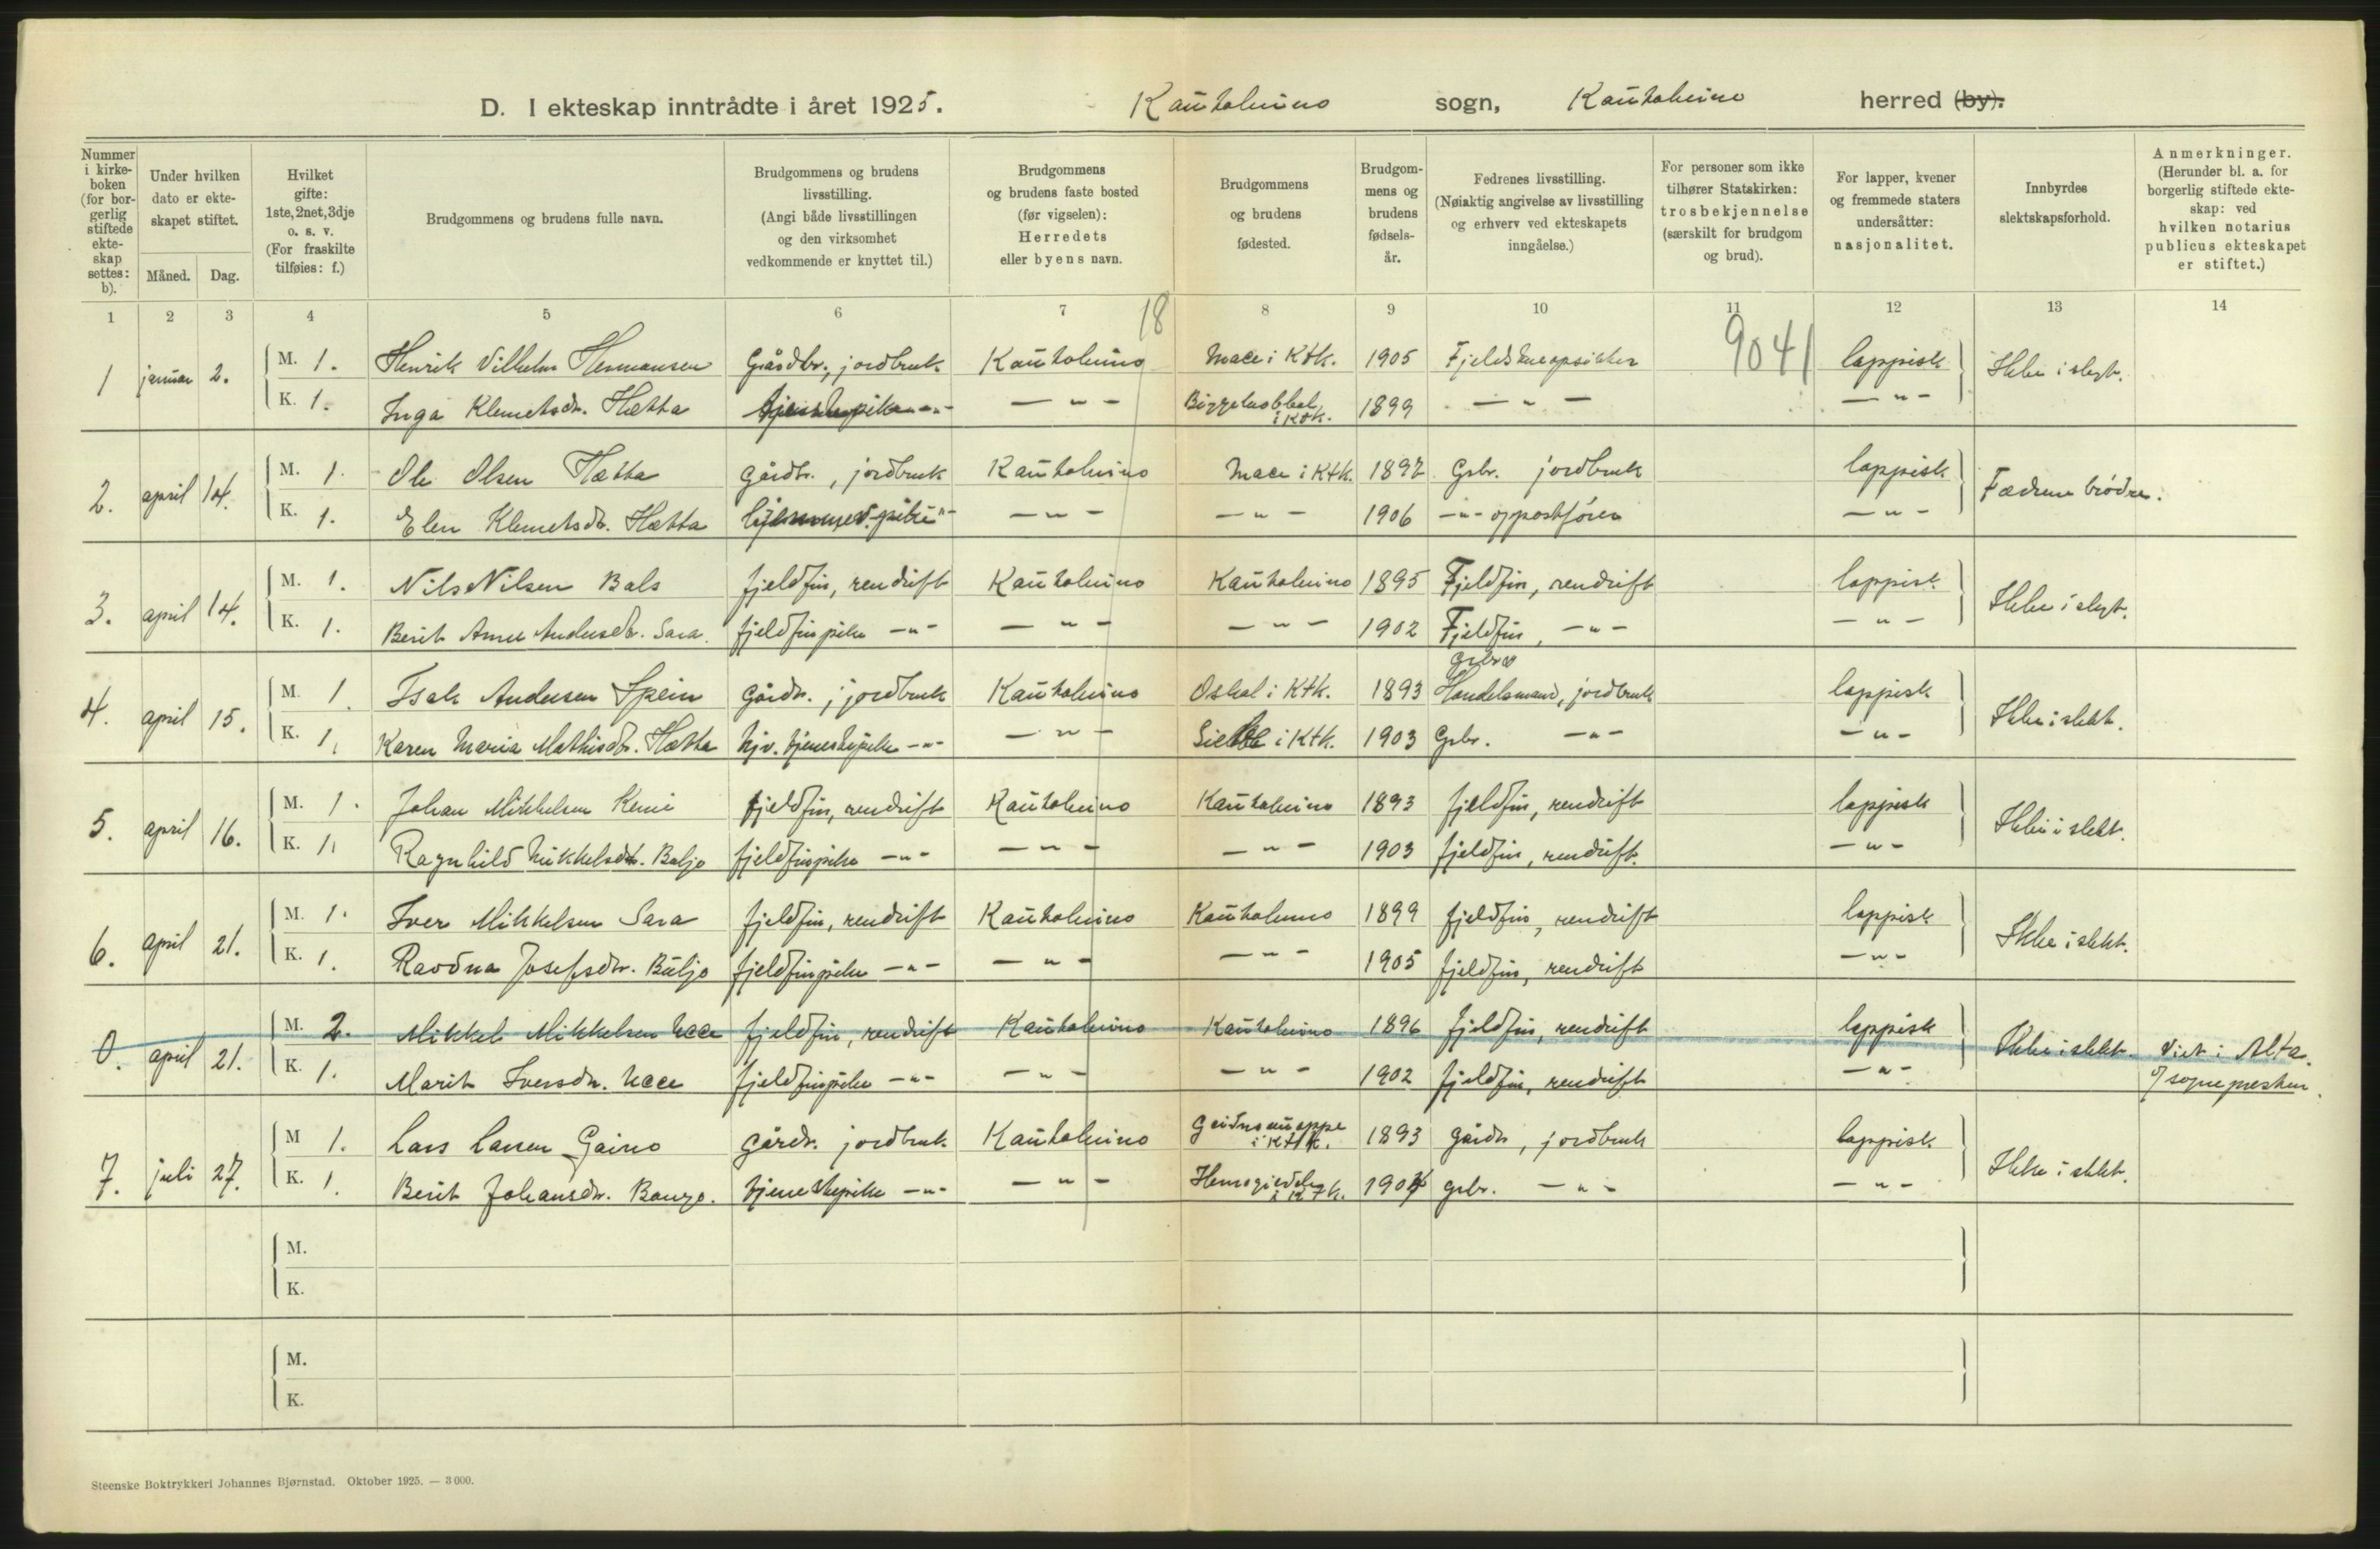 D. I ekteskap inntrådte i året 1925. Kautokeino sogn, Kautokeino herred (by).
Nummer i kirkeboken (for borgerlig stiftede ekteskap settes: b).
Under hvilken dato er ekteskapet stiftet.
Måned. Dag.
Hvilket gifte: 1ste, 2net, 3dje o. s. v. (For fraskilte tilføies: f.)
Brudgommens og brudens fulle navn.
Brudgommens og brudens livsstilling. (Angi både livsstillingen og den virksomhet vedkommende er knyttet til.)
Brudgommens og brudens faste bosted (før vigselen): Herredets eller byens navn.
Brudgommens og brudens fødested.
Brudgommens og brudens fødselsår.
Fedrenes livsstilling. (Nøiaktig angivelse av livsstilling og erhverv ved ekteskapets inngåelse.)
For personer som ikke tilhører Statskirken: trosbekjennelse (særskilt for brudgom og brud).
For lapper, kvener og fremmede staters undersåtter: nasjonalitet.
Innbyrdes slektskapsforhold.
Anmerkninger. (Herunder bl. a. for borgerlig stiftede ekteskap: ved hvilken notarius publicus ekteskapet er stiftet.)
1 2 3 4 5 6 7 8 9 10 11 12 13 14
18 9041
1 januar 2. M. 1. Henrik Vilhelm Hermansen Gårdbr., jordbruk Kautokeino Mace i Ktk. 1905 lappisk Ikke i slegt.
K. 1. Inga Klemetsdr. Hætta tjenestepike -"- — " — i Ktk. 1899 — " — — " —
2. april 14. M. 1. Ole Olsen Hætta gårdbr., jordbruk Kautokeino Mace i Ktk. 1897 Gbr. jordbruk lappisk Fædrene brødre.
K. 1. Elen Klemetsdr. Hætta — " — — " — 1906 -"- og postfører — " —
3. april 14. M. 1. Nils Nilsen Bals fjeldfin, rendrift Kautokeino Kautokeino 1895 Fjeldfin, rendrift lappisk Ikke i slegt.
K. 1. Berit Anne Andersdr. Sara. fjeldfinpike -"- — " — — " — 1902 Fjeldfin, -"- — " —
4. april 15. M. 1. Isak Andersen Spein Gårdbr., jordbruk Kautokeino Oskal i Ktk. 1893 Gbr. og Handelsmand, jordbruk lappisk Ikke i slekt.
K. 1. Karen Maria Mathisdr. Hætta hjv. tjenestepike -"- — " — Siebe i Ktk. 1903 Gbr. -"- — " —
5. april 16. M. 1. Johan Mikkelsen Kemi fjeldfin, rendrift Kautokeino Kautokeino 1893 fjeldfin, rendrift lappisk Ikke i slekt.
K. 1. Ragnhild Mikkelsdr. Buljo fjeldfinpike -"- — " — — " — 1903 fjeldfin, rendrift. — " —
6. april 21. M. 1. Iver Mikkelsen Sara fjeldfin, rendrift Kautokeino Kautokeino 1899 fjeldfin, rendrift lappisk Ikke i slekt.
K. 1. Ravdna Josefsdr. Buljo fjeldfinpike -"- — " — — " — 1905 fjeldfin, rendrift — " —
0. april 21. M. 2. Mikkel Mikkelsen Ucce fjeldfin, rendrift Kautokeino Kautokeino 1896 fjeldfin, rendrift lappisk Ikke i slekt. Viet i Alta.
K. 1. Marit Iversdr. Ucce fjeldfinpike -"- — " — — " — 1902 fjeldfin, rendrift — " — sognepresten.
7. juli 27. M 1. Lars Larsen Gaino gårdbr. jordbruk Kautokeino i Ktk. 1893 gårdbr., jordbruk lappisk Ikke i slekt.
K. 1. Berit Johansdr. Bongo. tjenestepike -"- — " — i Ktk. 1904 gbr. — " — — " —
M.
K.
M.
K.
Steenske Boktrykkeri Johannes Bjørnstad. Oktober 1925. — 3 000.